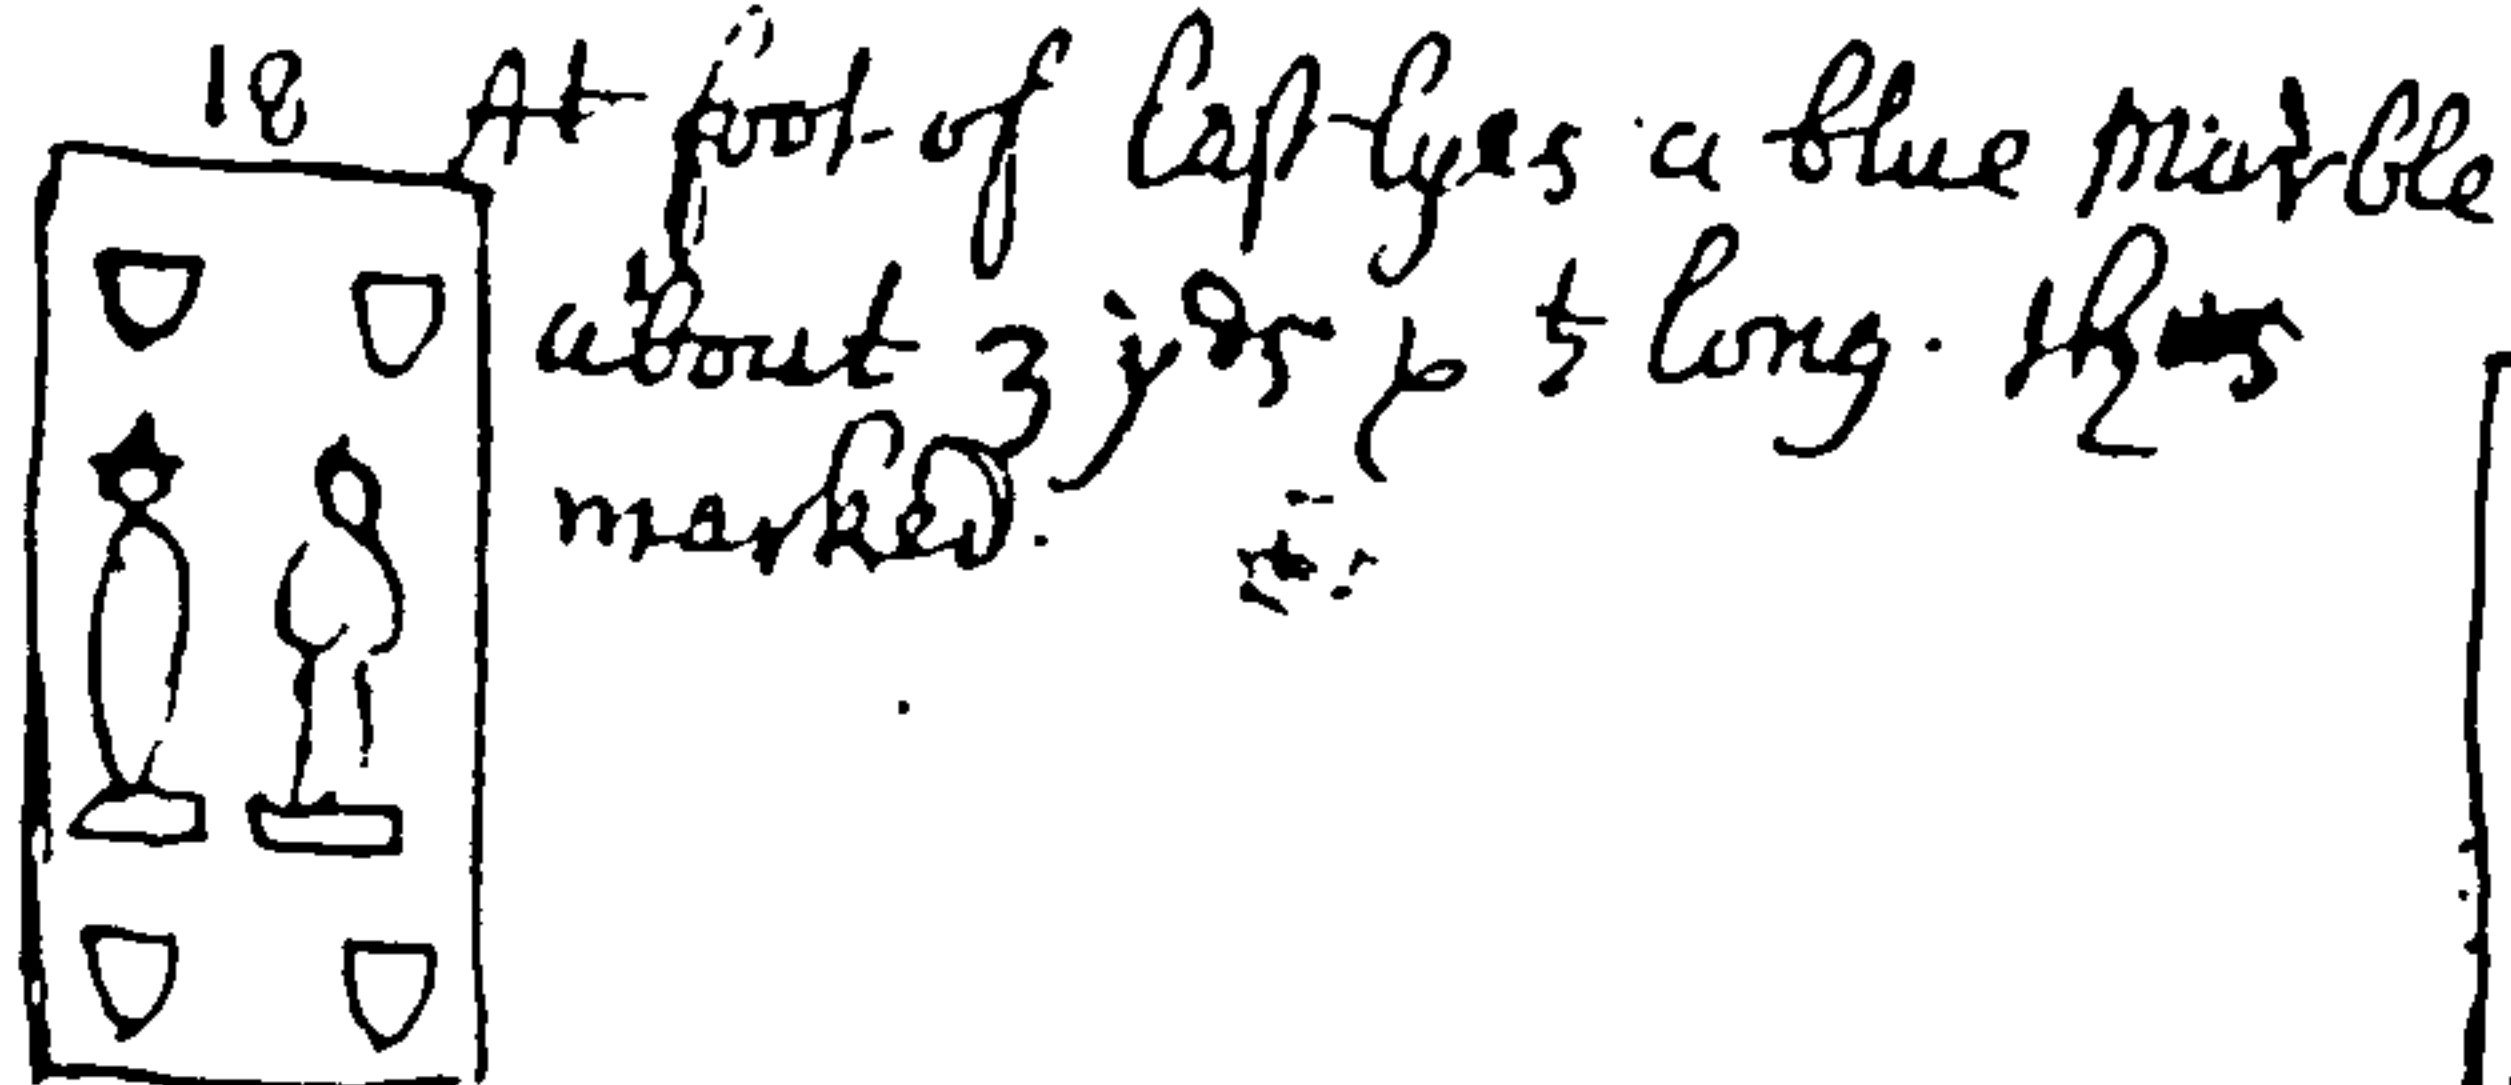 18 At foot of last lyes a blue Marble
about 3 yds & ½ long. thus
marked.